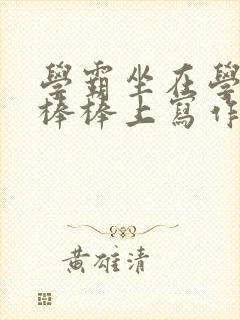 學霸坐在學
棒棒上寫作
黃雄清